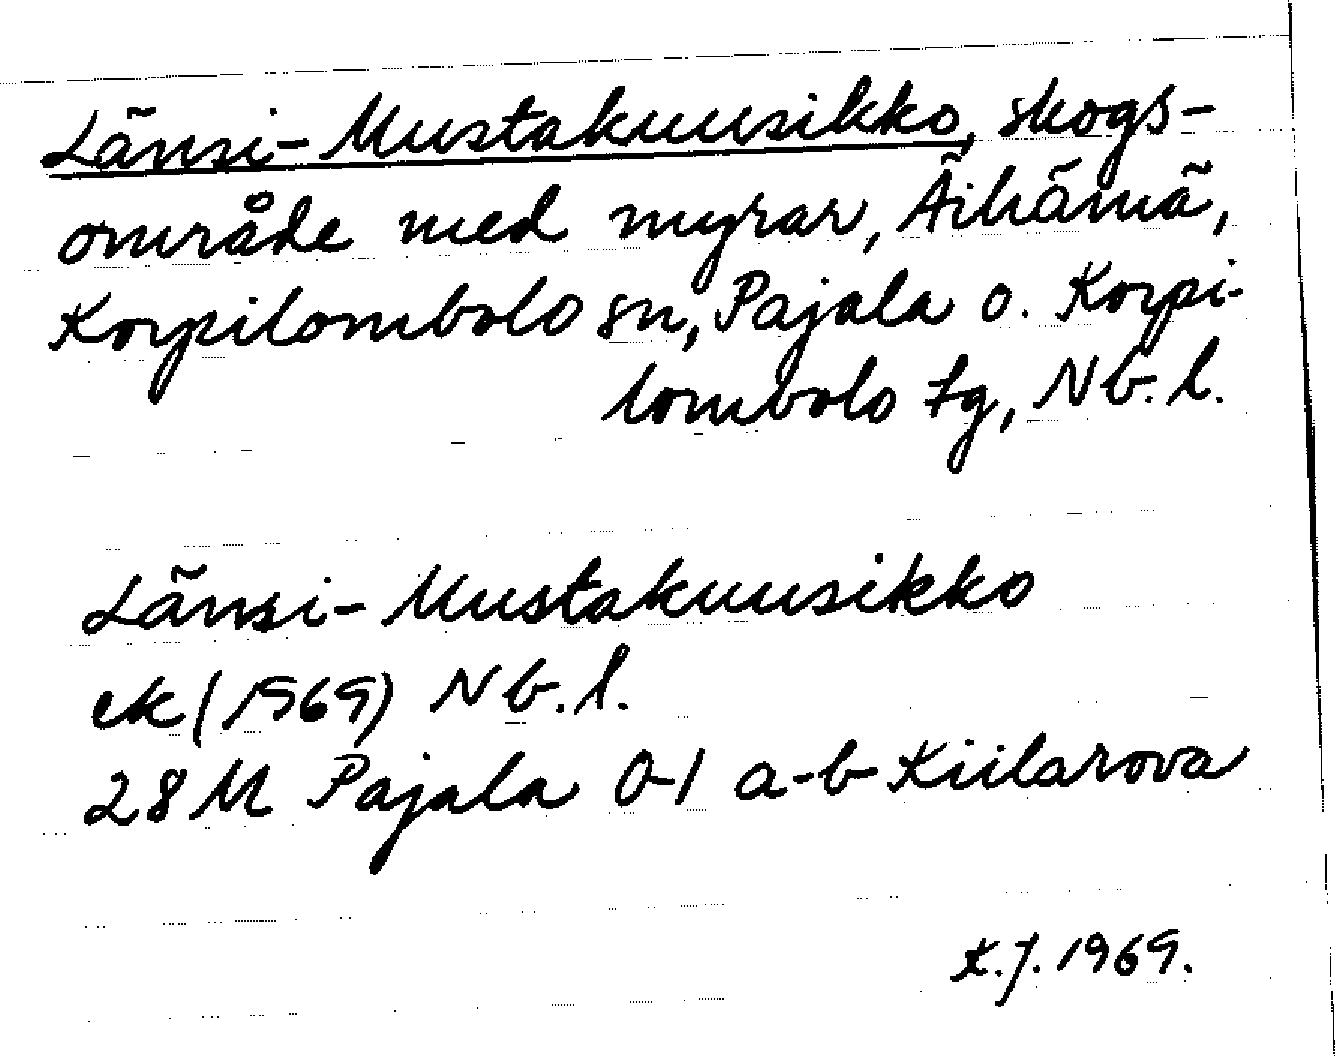 Länsi-Mustakuusikko, skogs-
område med myrar, Äihämä,
Korpilombolo sn, Pajala o. Korpi-
lombolo tg, Nb. l.
Länsi-Mustakuusikko
ek (1969) Nb. l.
28 M Pajala 0-1 a-b Kiilarova
K.J. 1969.